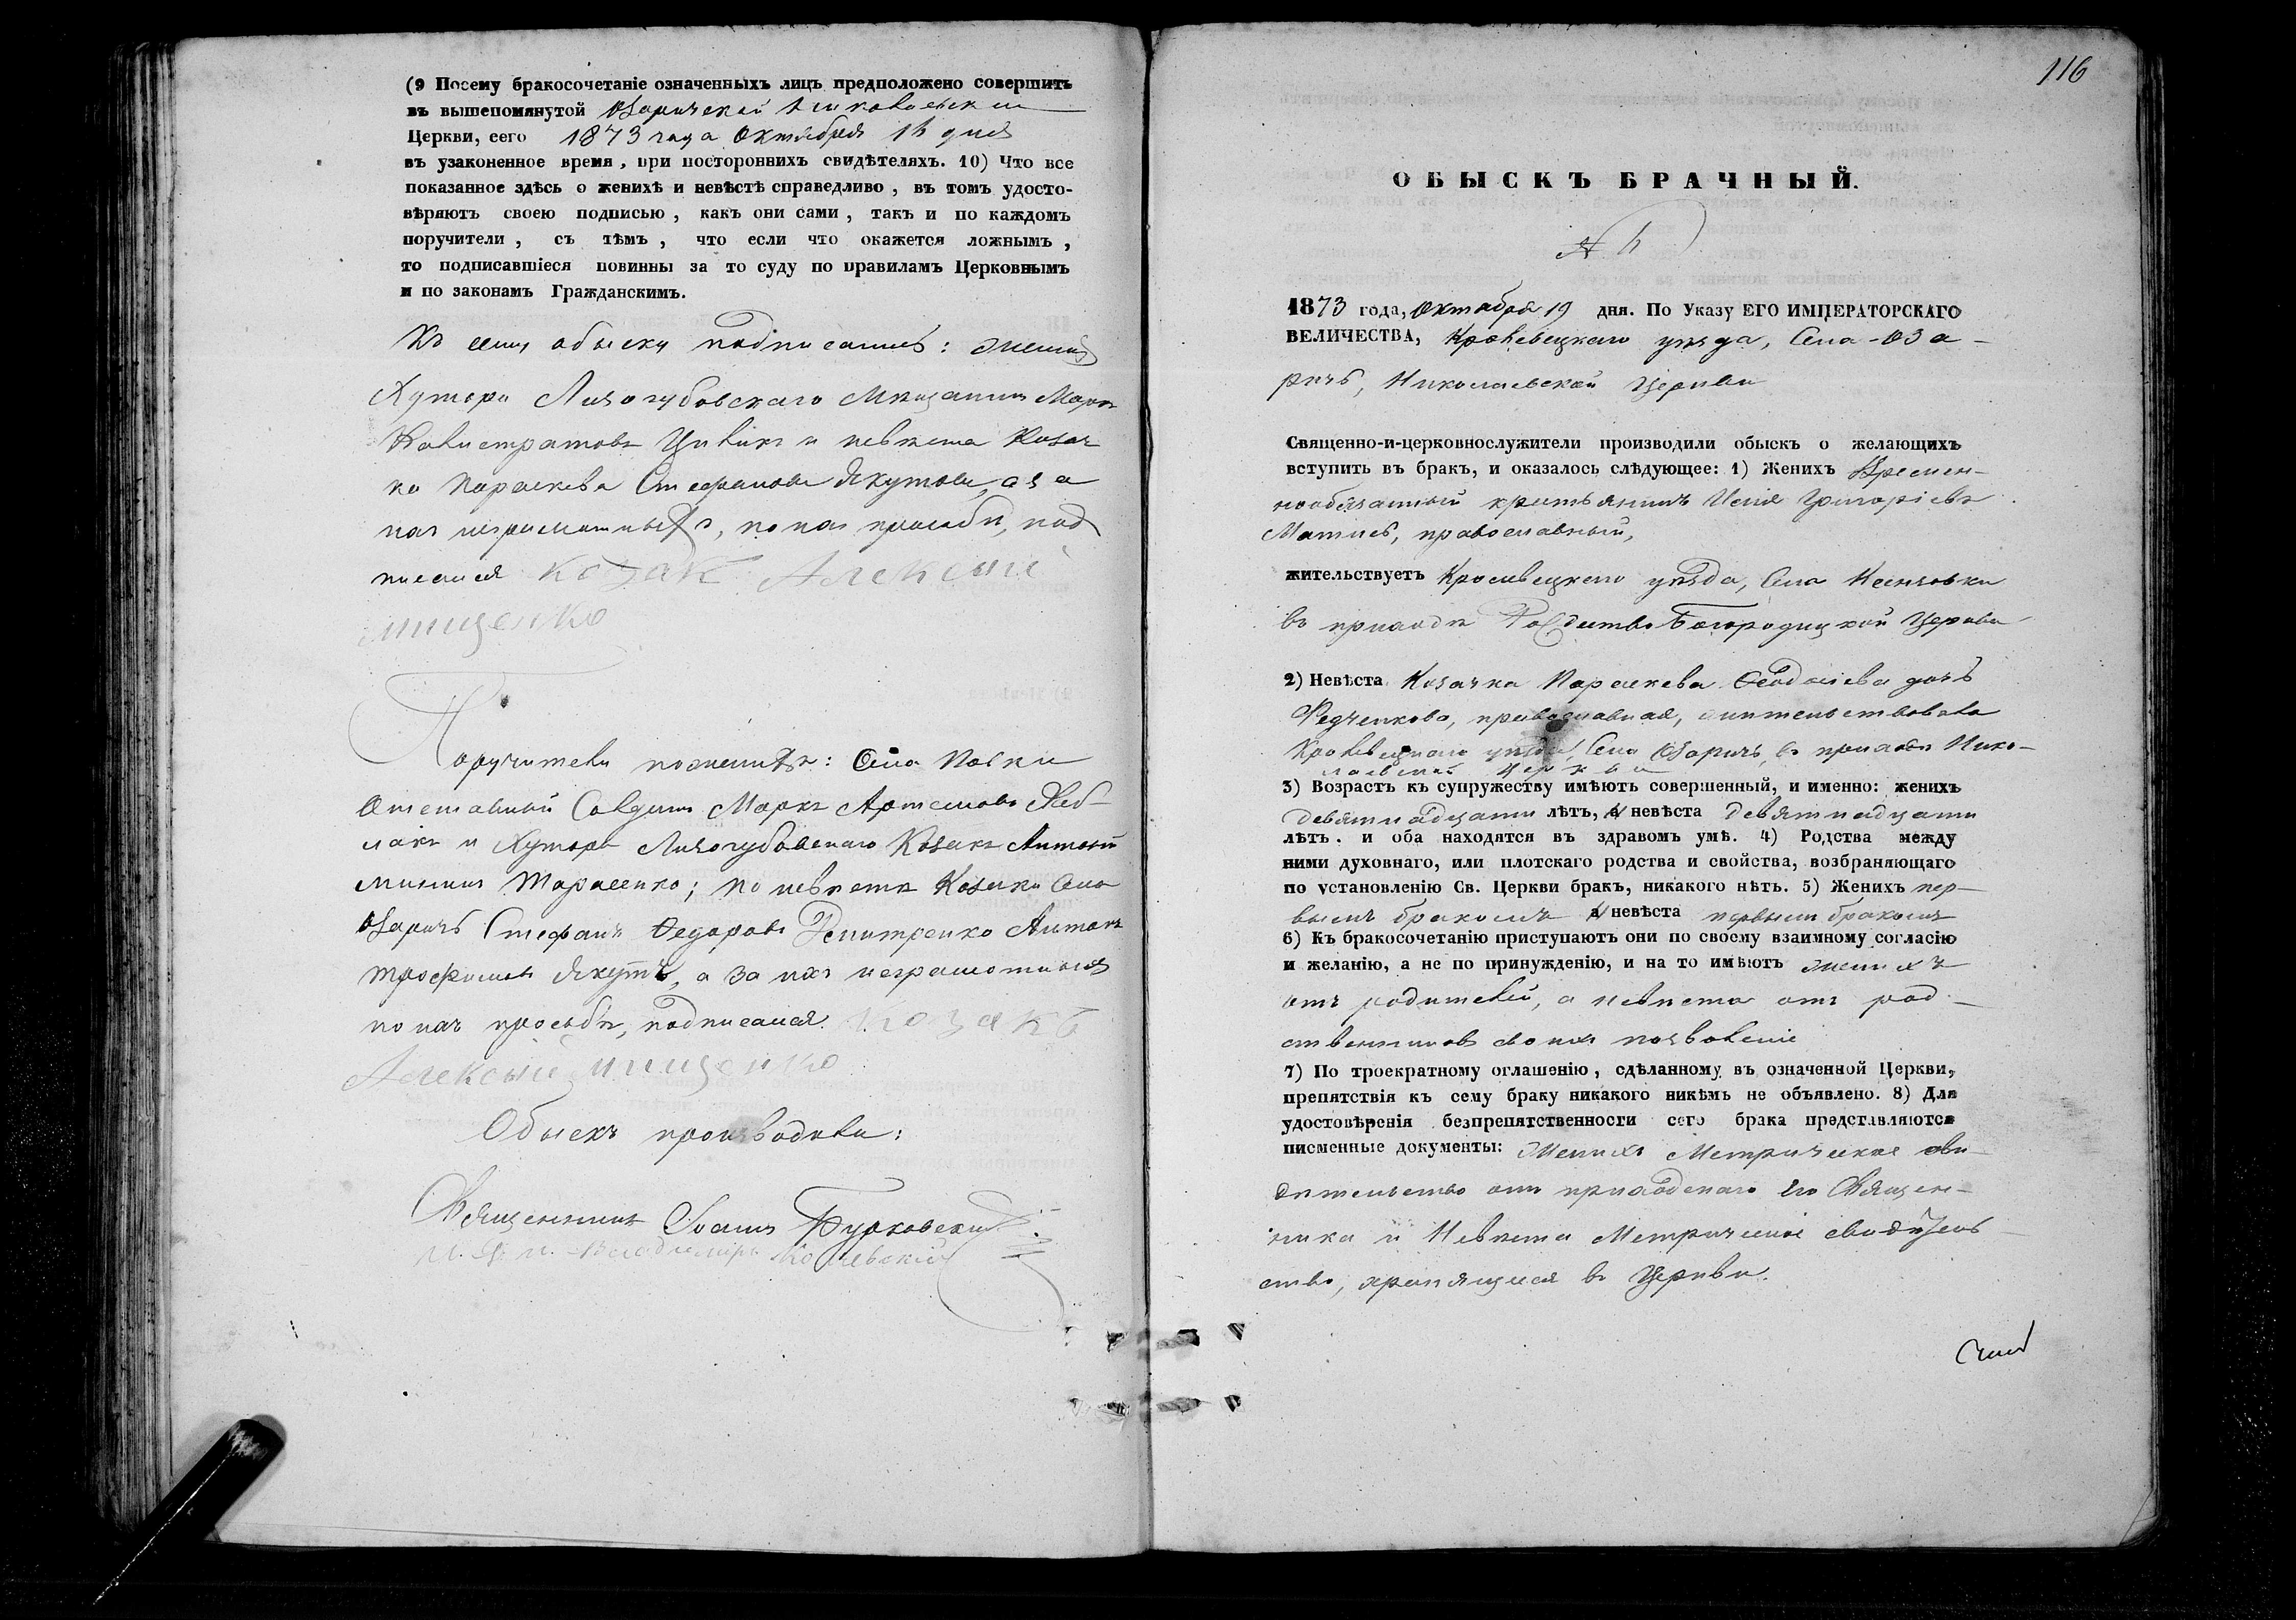 (9 Посему бракосочетаніе означенныхъ лицъ предположено совершить
въ вышепомянутой Озаричской Николаевской
Церкви, сего 1873 года Октября дня
въ узаконенное время, при постороннихъ свидѣтеляхъ. 10) Что все
показанное здѣсь о женихѣ и невѣстѣ справедливо, въ томъ удосто-
вѣряютъ своею подписью, какъ они сами, такъ и по каждомъ
поручители, съ тѣмъ, что если что окажется ложнымъ,
то подписавшіеся повинны за то суду по правиламъ Церковнымъ
и по законамъ Гражданскимъ.
Къ сему обыску подписались: женихъ
Хутора Лизогубовскаго Мѣщанинъ Маркъ
и невѣста Козач
ка Параскева Стефанова Якутова, а за
нихъ неграмотныхъ, по ихъ просьбѣ, под
писался козакъ Алексѣй
мищенко
Поручители по женихѣ: Села
Отставный Солдатъ Маркъ Артемовъ
и Хутора Лизогубовскаго Козакъ Антоній
Тарасенко; по невѣстѣ Козаки Села
Озаричъ Стефанъ Федоровъ Дмитренко Антонъ
Трофимовъ Якутъ, а за ихъ неграмотныхъ
по ихъ просьбѣ, подписался козакъ
Алексѣй мищенко
Обыскъ производили:
Священникъ Іоаннъ Бурховскій
Владиміръ
116
ОБЫСКЪ БРАЧНЫЙ.
№
1873 года, Октября 19 дня. По Указу ЕГО ИМПЕРАТОРСКАГО
ВЕЛИЧЕСТВА, Кролевецкаго уѣзда, Села Оза-
ричъ, Николаевской Церкви
Священно-и-церковнослужители производили обыскъ о желающихъ
вступить въ бракъ, и оказалось слѣдующее: 1) Женихъ Времен-
нообязанный крестьянинъ Илія Григоріевъ
православный,
жительствуетъ Кролевецкаго уѣзда, Села
въ приходѣ Рождество Богородицкой Церкви
2) Невѣста Козачка Параскева Феодосіева дочь
Федченкова, православная, жительствовала
Кролевецкаго уѣзда, Села Озаричъ, въ приходѣ Нико-
лаевской Церкви
3) Возрастъ къ супружеству имѣютъ совершенный, и именно: женихъ
девятнадцати лѣтъ, а невѣста девятнадцати
лѣтъ. и оба находятся въ здравомъ умѣ. 4) Родства между
ними духовнаго, или плотскаго родства и свойства, возбраняющаго
по установленію Св. Церкви бракъ, никакого нѣтъ. 5) Женихъ пер-
вымъ бракомъ а невѣста первымъ бракомъ
6) Къ бракосочетанію приступаютъ они по своему взаимному согласію
и желанію, а не по принужденію, и на то имѣютъ женихъ
отъ родителей, а невѣста отъ род-
ственниковъ своихъ позволеніе
7) По троекратному оглашенію, сдѣланному въ означенной Церкви,
препятствія къ сему браку никакого никѣмъ не объявлено. 8) Для
удостовѣренія безпрепятственности сего брака представляются
писменные документы: Женихъ Метрическое сви-
дѣтельство отъ приходскаго его Священ-
ника и Невѣста Метрическое свидѣтель
ство, хранящися въ Церкви.